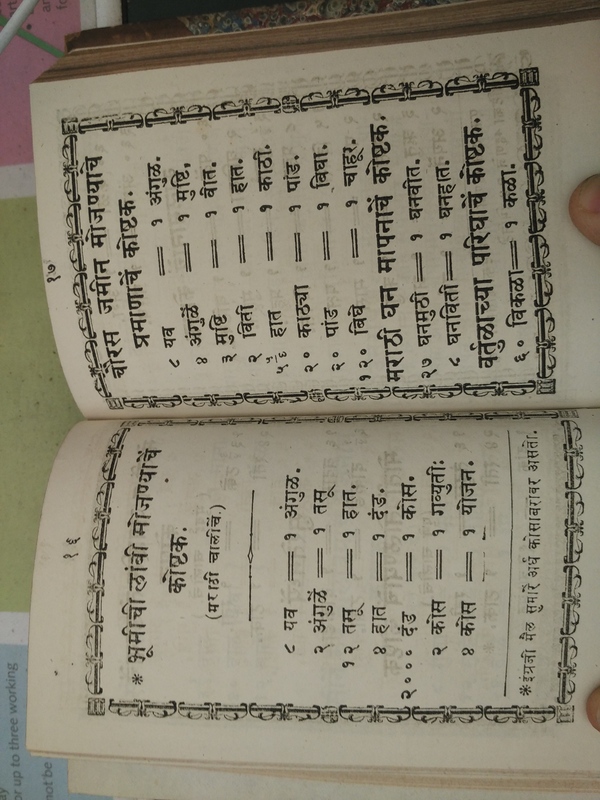 १६
* भूमीची लांबी मोजण्याचें
कोष्टक.
(मराठी चालीचें.)
८ यव = १ अंगुळ.
२ अंगुळें = १ तसू
१२ तसू = १ हात.
४ हात = १ दंड.
२००० दंड = १ कोस.
२ कोस = १ गव्यूतीः
४ कोस = १ योजन.
*इंग्रजी मैल सुमारें अर्ध कोसाबरोबर असतो.
१७
चौरस जमीन मोजण्याचें
प्रमाणाचें कोष्टक.
८ यव = १ अंगुळ.
४ अंगुळें = १ मुष्टि,
३ मुष्टि = १ वीत.
२ विती = १ हात.
५ ५/६ हात = १ काठी.
२० काठ्या = १ पांड.
२० पांड = १ बिघा.
१२० बिघे = १ चाहूर.
मराठी घन मापनाचें कोष्टक.
२७ घनमुठी = १ घनवीत.
८ घनविती = १ घनहात.
वर्तुळाच्या परिघाचें कोष्टक.
६० विकळा = १ कळा.
day
or up to three working
not be